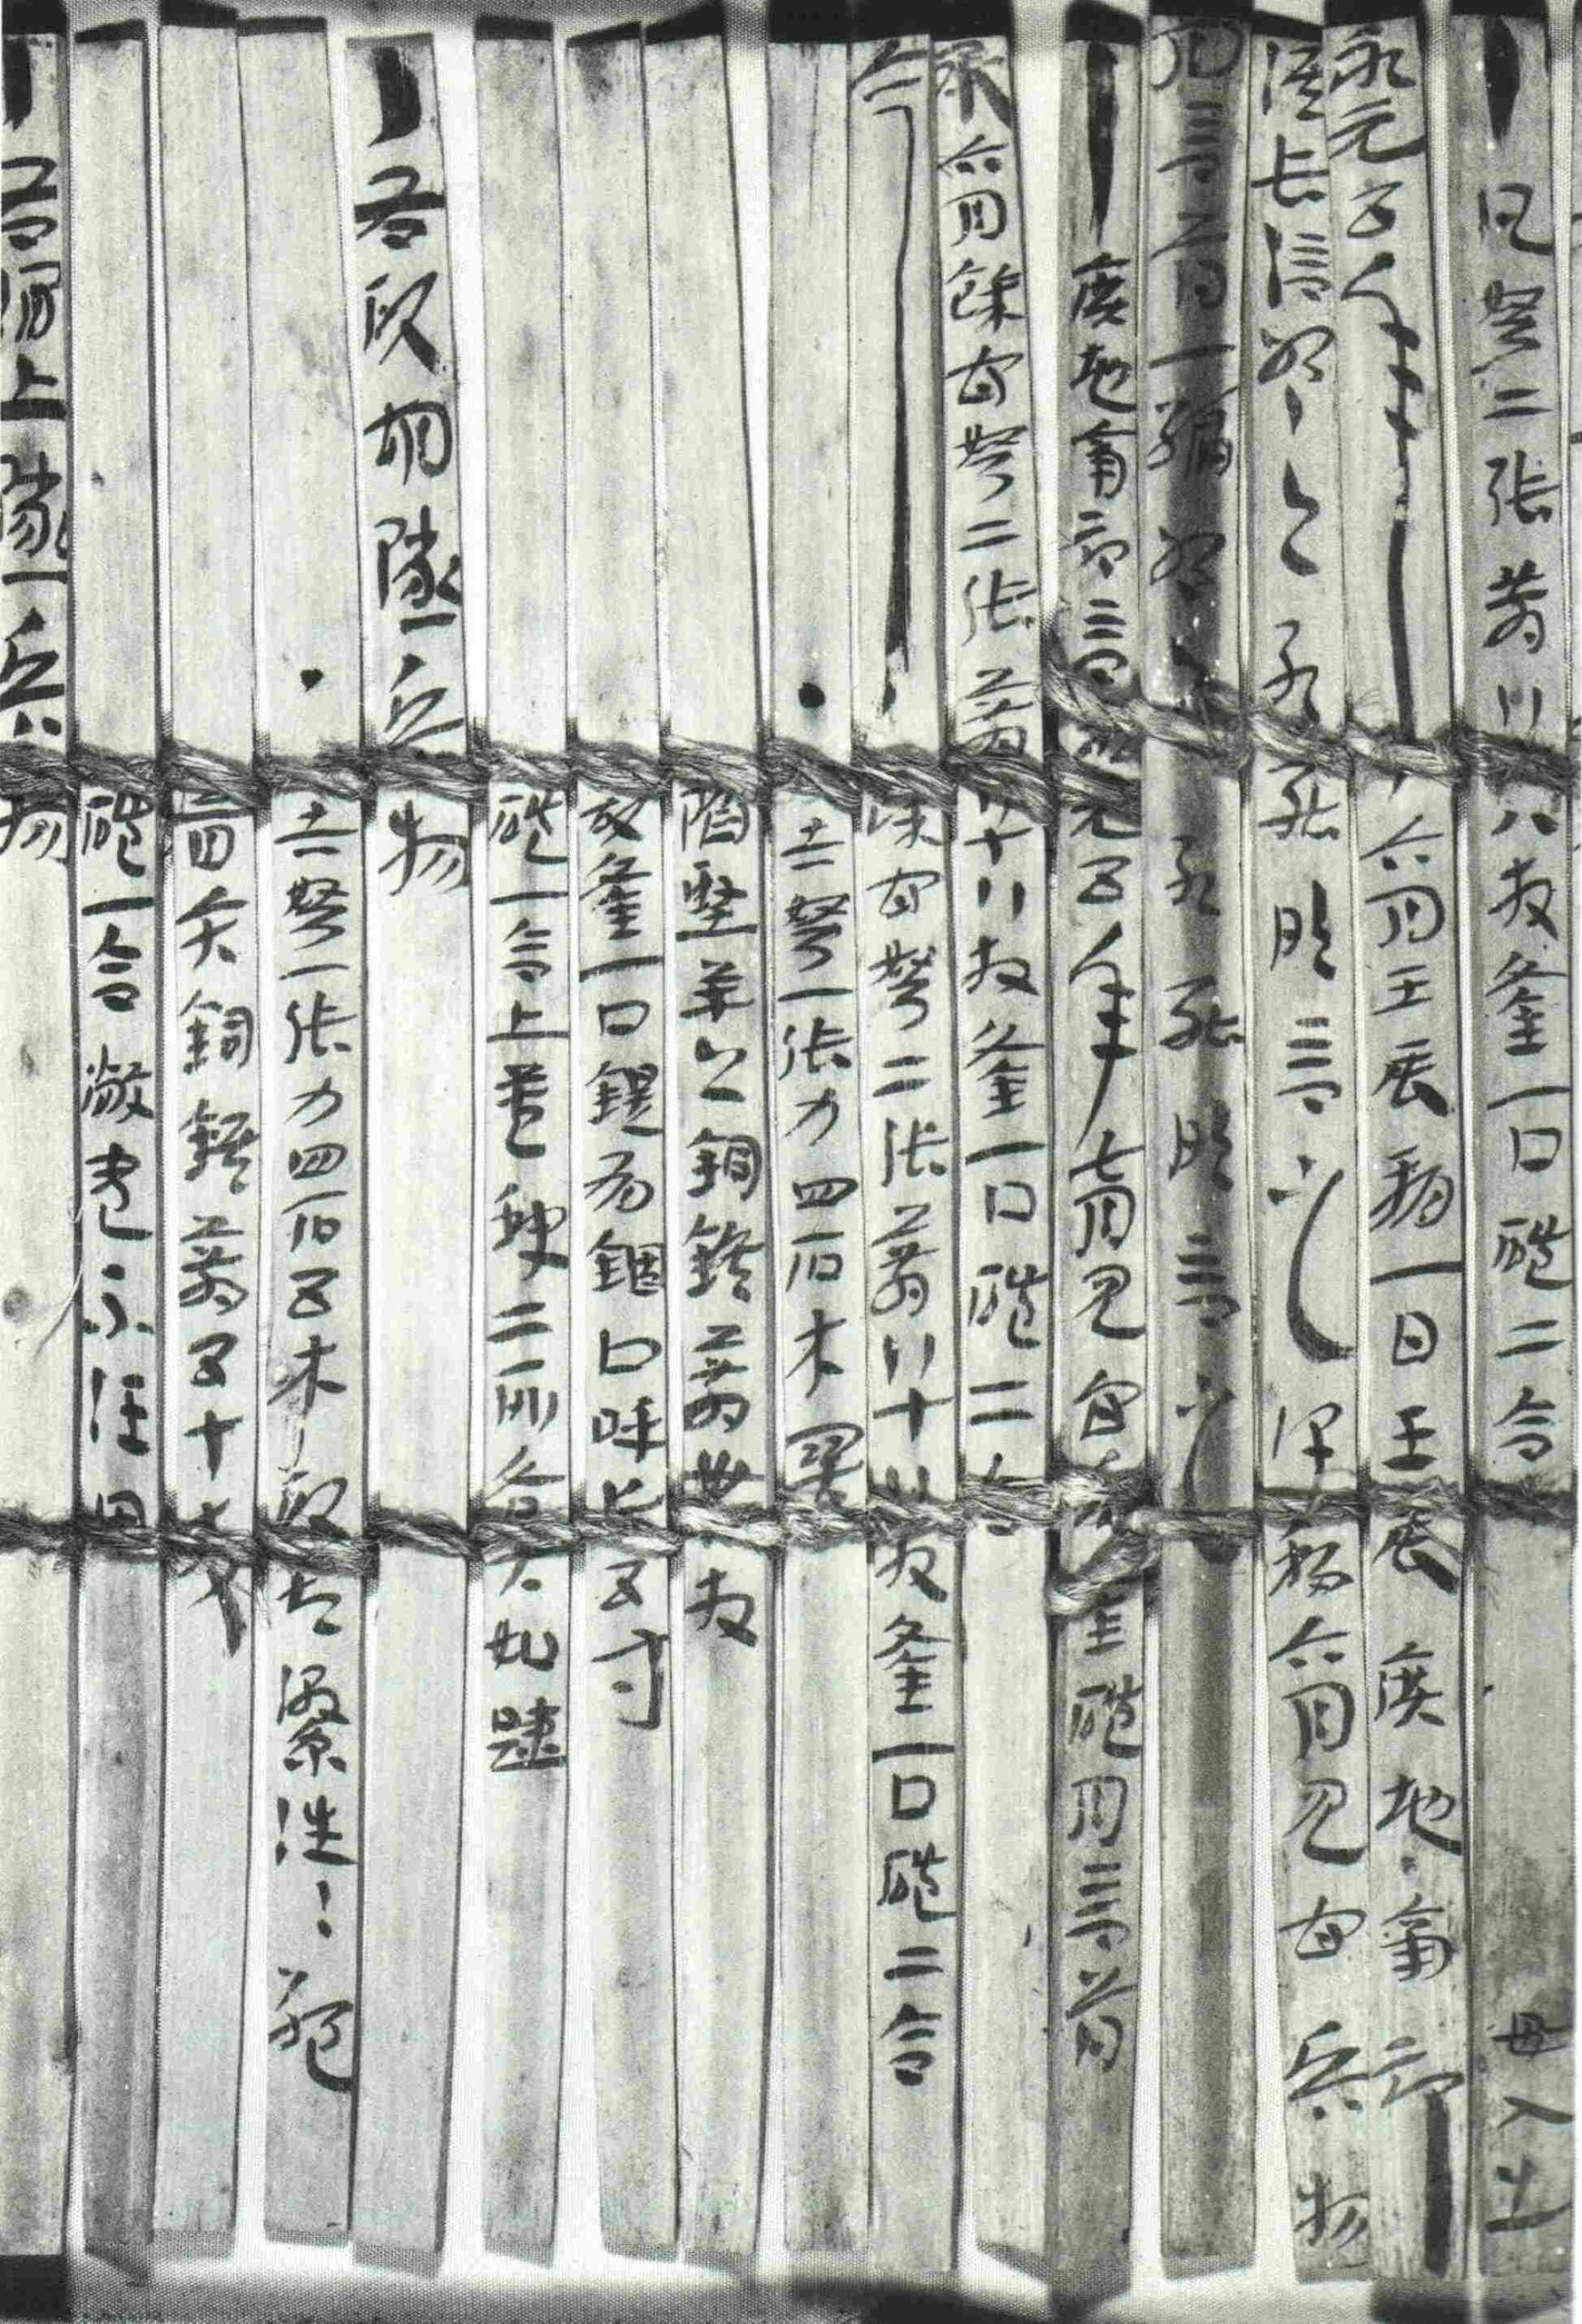 凡弩二張箭八十八枚釜一口磑二合　毋入出
永元五年六月壬辰朔一日壬辰廣地南部
候長信叩頭死罪敢言之謹移六月見官兵物
月言簿一編叩頭死罪敢言之
廣地南部言永元五年七月見官兵釜磑月言簿
承六月餘官弩二張箭八十八枚釜一口磑二合
今餘官弩二張箭八十八枚釜一口磑二合
●赤弩一張力四石木關
陷堅羊頭銅鍭箭卅八枚
故釜一口鍉有錮口呼長五寸
磑一合上蓋缺二所各大如踈
右破胡隧兵物
●赤弩一張力四石五木破起繳往往絕
盲矢銅鍭箭五十枚
磑一合敝盡不任用
右澗上隧兵物